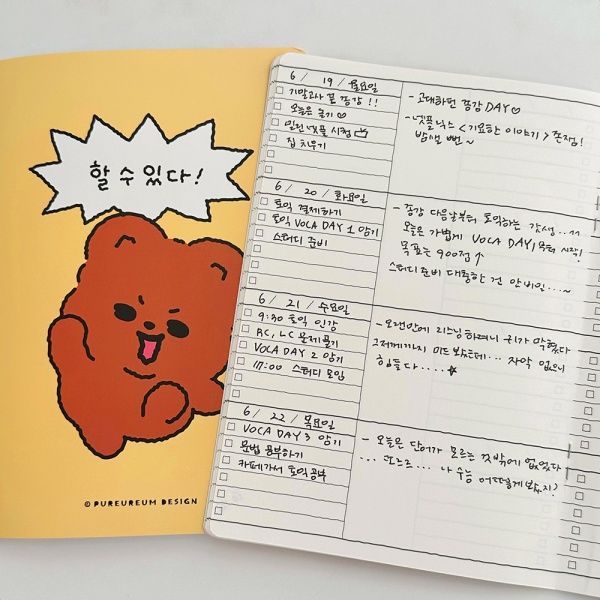 할 수 있다!
© PUREUREUM DESIGN
6 / 19 / 월요일
기말고사 끝 종강!!
오늘은 놀기♡
밀린 넷플 시청
집 치우기
- 고대하던 종강DAY♡
- 넷플릭스 <기묘한 이야기> 존잼!
밤샐 뻔~
6 / 20 / 화요일
토익 결제하기
토익 VOCA DAY 1 암기
스터디 준비
- 종강 다음날부터 토익하는 갓생..ㅜㅜ
오늘은 가볍게 VOCA DAY1부터 시작!
목표는 900점↑
스터디 준비 대충한 건 안비밀...~
6 / 21 / 수요일
9:30 토익 인강
RC, LC 문제풀기
VOCA DAY 2 암기
17:00 스터디 모임
- 오랜만에 리스닝하려니 귀가 막혔다
그저께까지 미드 봤는데... 자막 없으니
힘들다....★
6 / 22 / 목요일
VOCA DAY 3 암기
문법 공부하기
카페가서 토익공부
- 오늘은 단어가 모르는 것밖에 없었다
... 또르르... 나 수능 어떻게 봤지?